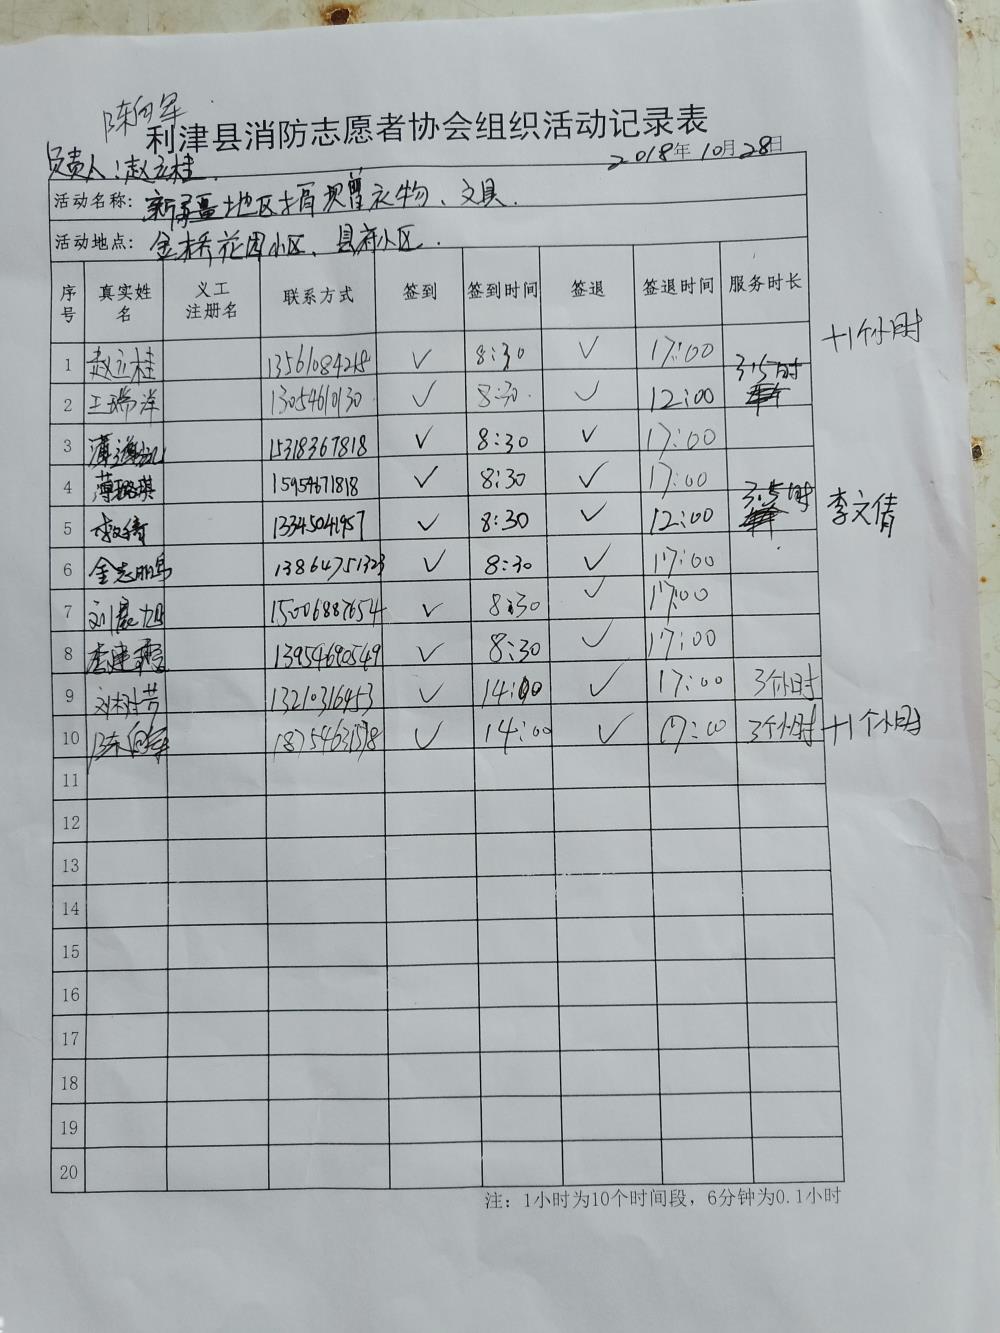 陈向军
利津县消防志愿者协会组织活动记录表
负责人：赵立桂. 2018年10月28日
活动名称: 新疆地区捐赠衣物、文具.
活动地点: 金桥花园小区、县府小区.
序号 真实姓名 义工注册名 联系方式 签到 签到时间 签退 签退时间 服务时长
+1个小时
1 赵立桂 13561084218 ✓ 8:30 ✓ 17:00
2 王瑞洋 13054610130 ✓ 8:30 ✓ 12:00 3.5时
3 15318367818 ✓ 8:30 ✓ 17:00
4 薄璐琪 15954671818 ✓ 8:30 ✓ 17:00
5 李文倩 13345041957 ✓ 8:30 ✓ 12:00 3.5时 李文倩
6 金志鹏 13864751323 ✓ 8:30 ✓ 17:00
7 刘晨旭 15006887654 ✓ 8:30 ✓ 17:00
8 13954690549 ✓ 8:30 ✓ 17:00
9 刘树芳 13210316453 ✓ 14:00 ✓ 17:00 3个小时
10 陈向军 ✓ 14:00 ✓ 17:00 3个小时 +1个小时
11
12
13
14
15
16
17
18
19
20
注: 1小时为10个时间段，6分钟为0.1小时